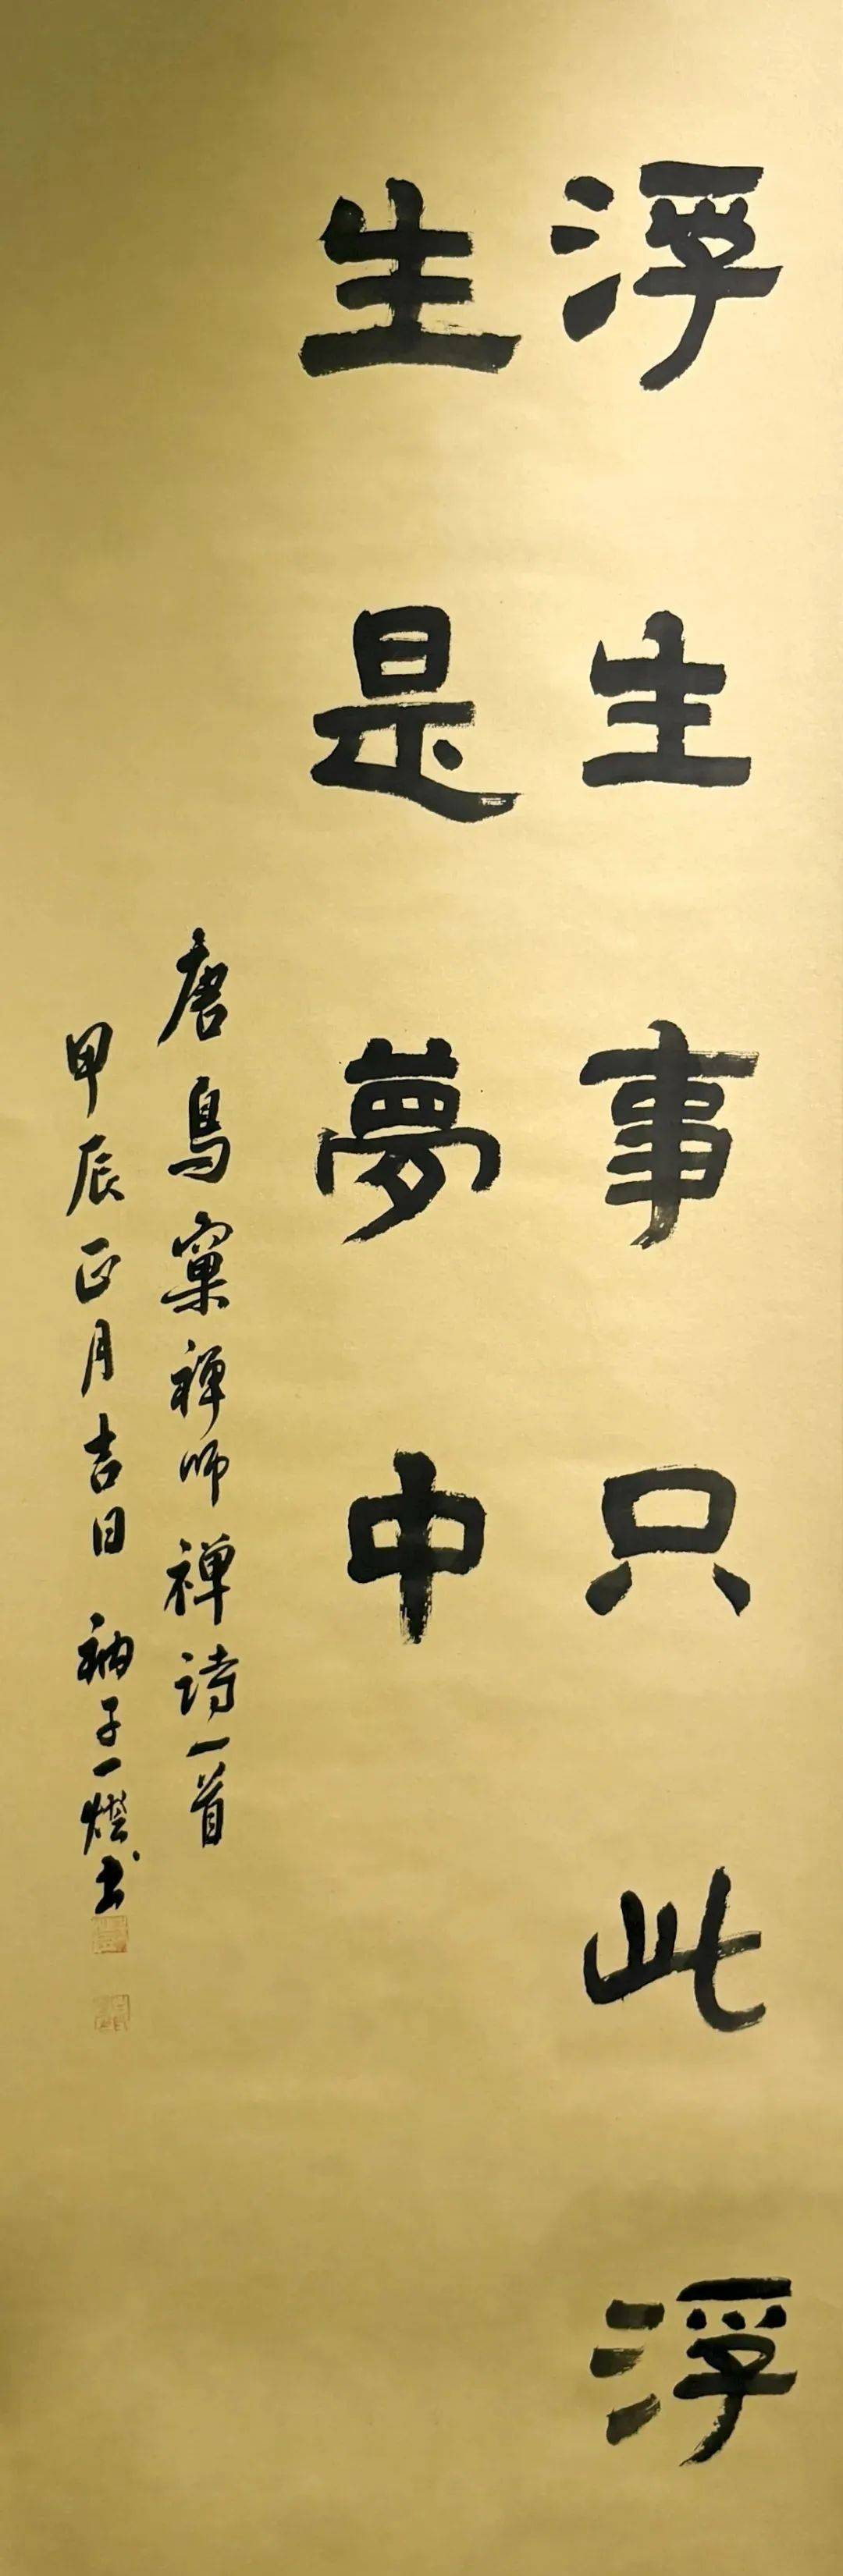 浮生事只此浮
生是夢中
唐鳥窠禅师禅诗一首
甲辰正月吉日 衲子一燈书